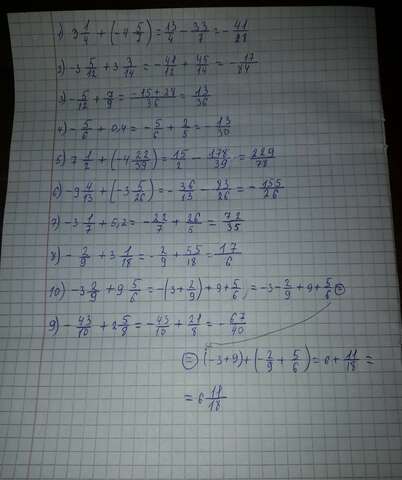 1) 3 1/4 + (-4 5/7) = 13/4 - 33/7 = - 41/28
2) -3 5/12 + 3 3/14 = - 41/12 + 45/14 = - 17/84
3) - 5/12 + 7/9 = (-15+28)/36 = 13/36
4) - 5/6 + 0,4 = - 5/6 + 2/5 = - 13/30
5) 7 1/2 + (-4 22/39) = 15/2 - 178/39 = 229/78
6) -9 4/13 + (-3 5/26) = - 36/13 - 83/26 = - 155/26
7) -3 1/7 + 5,2 = - 22/7 + 26/5 = 72/35
8) - 2/9 + 3 1/18 = - 2/9 + 55/18 = 17/6
10) -3 2/9 + 9 5/6 = -(3 + 2/9) + 9 + 5/6 = -3 - 2/9 + 9 + 5/6 =
9) - 43/10 + 2 5/8 = - 43/10 + 21/8 = - 67/40
= (-3+9) + (- 2/9 + 5/6) = 6 + 11/18 =
= 6 11/18